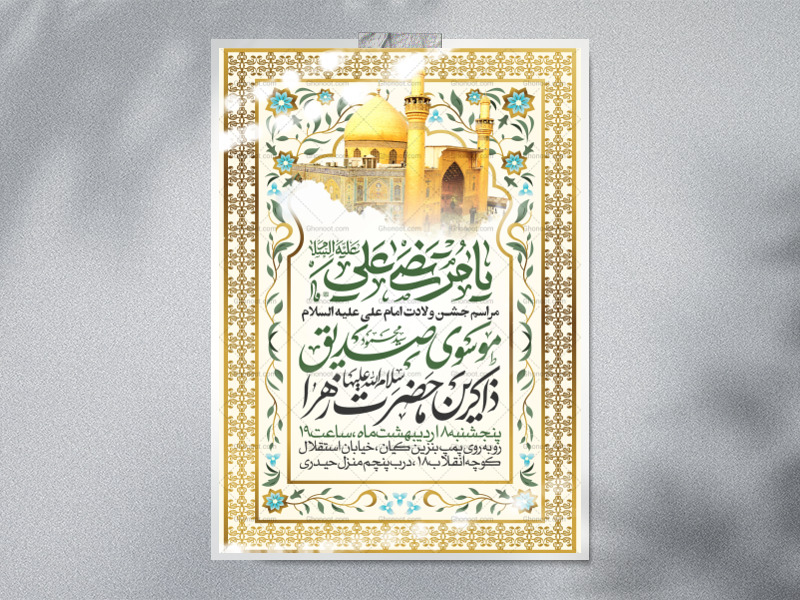 یا مرتضی علی علیه السلام
مراسم جشن ولادت امام علی علیه السلام
سید محمود
موسوی صدیق
ذاکرین حضرت زهرا سلام الله علیها
پنجشنبه ۱۸ اردیبهشت ماه ، ساعت ۱۹
روبه روی پمپ بنزین کیان ، خیابان استقلال
کوچه انقلاب ۱۸ ، درب پنجم منزل حیدری
Ghonoot.com